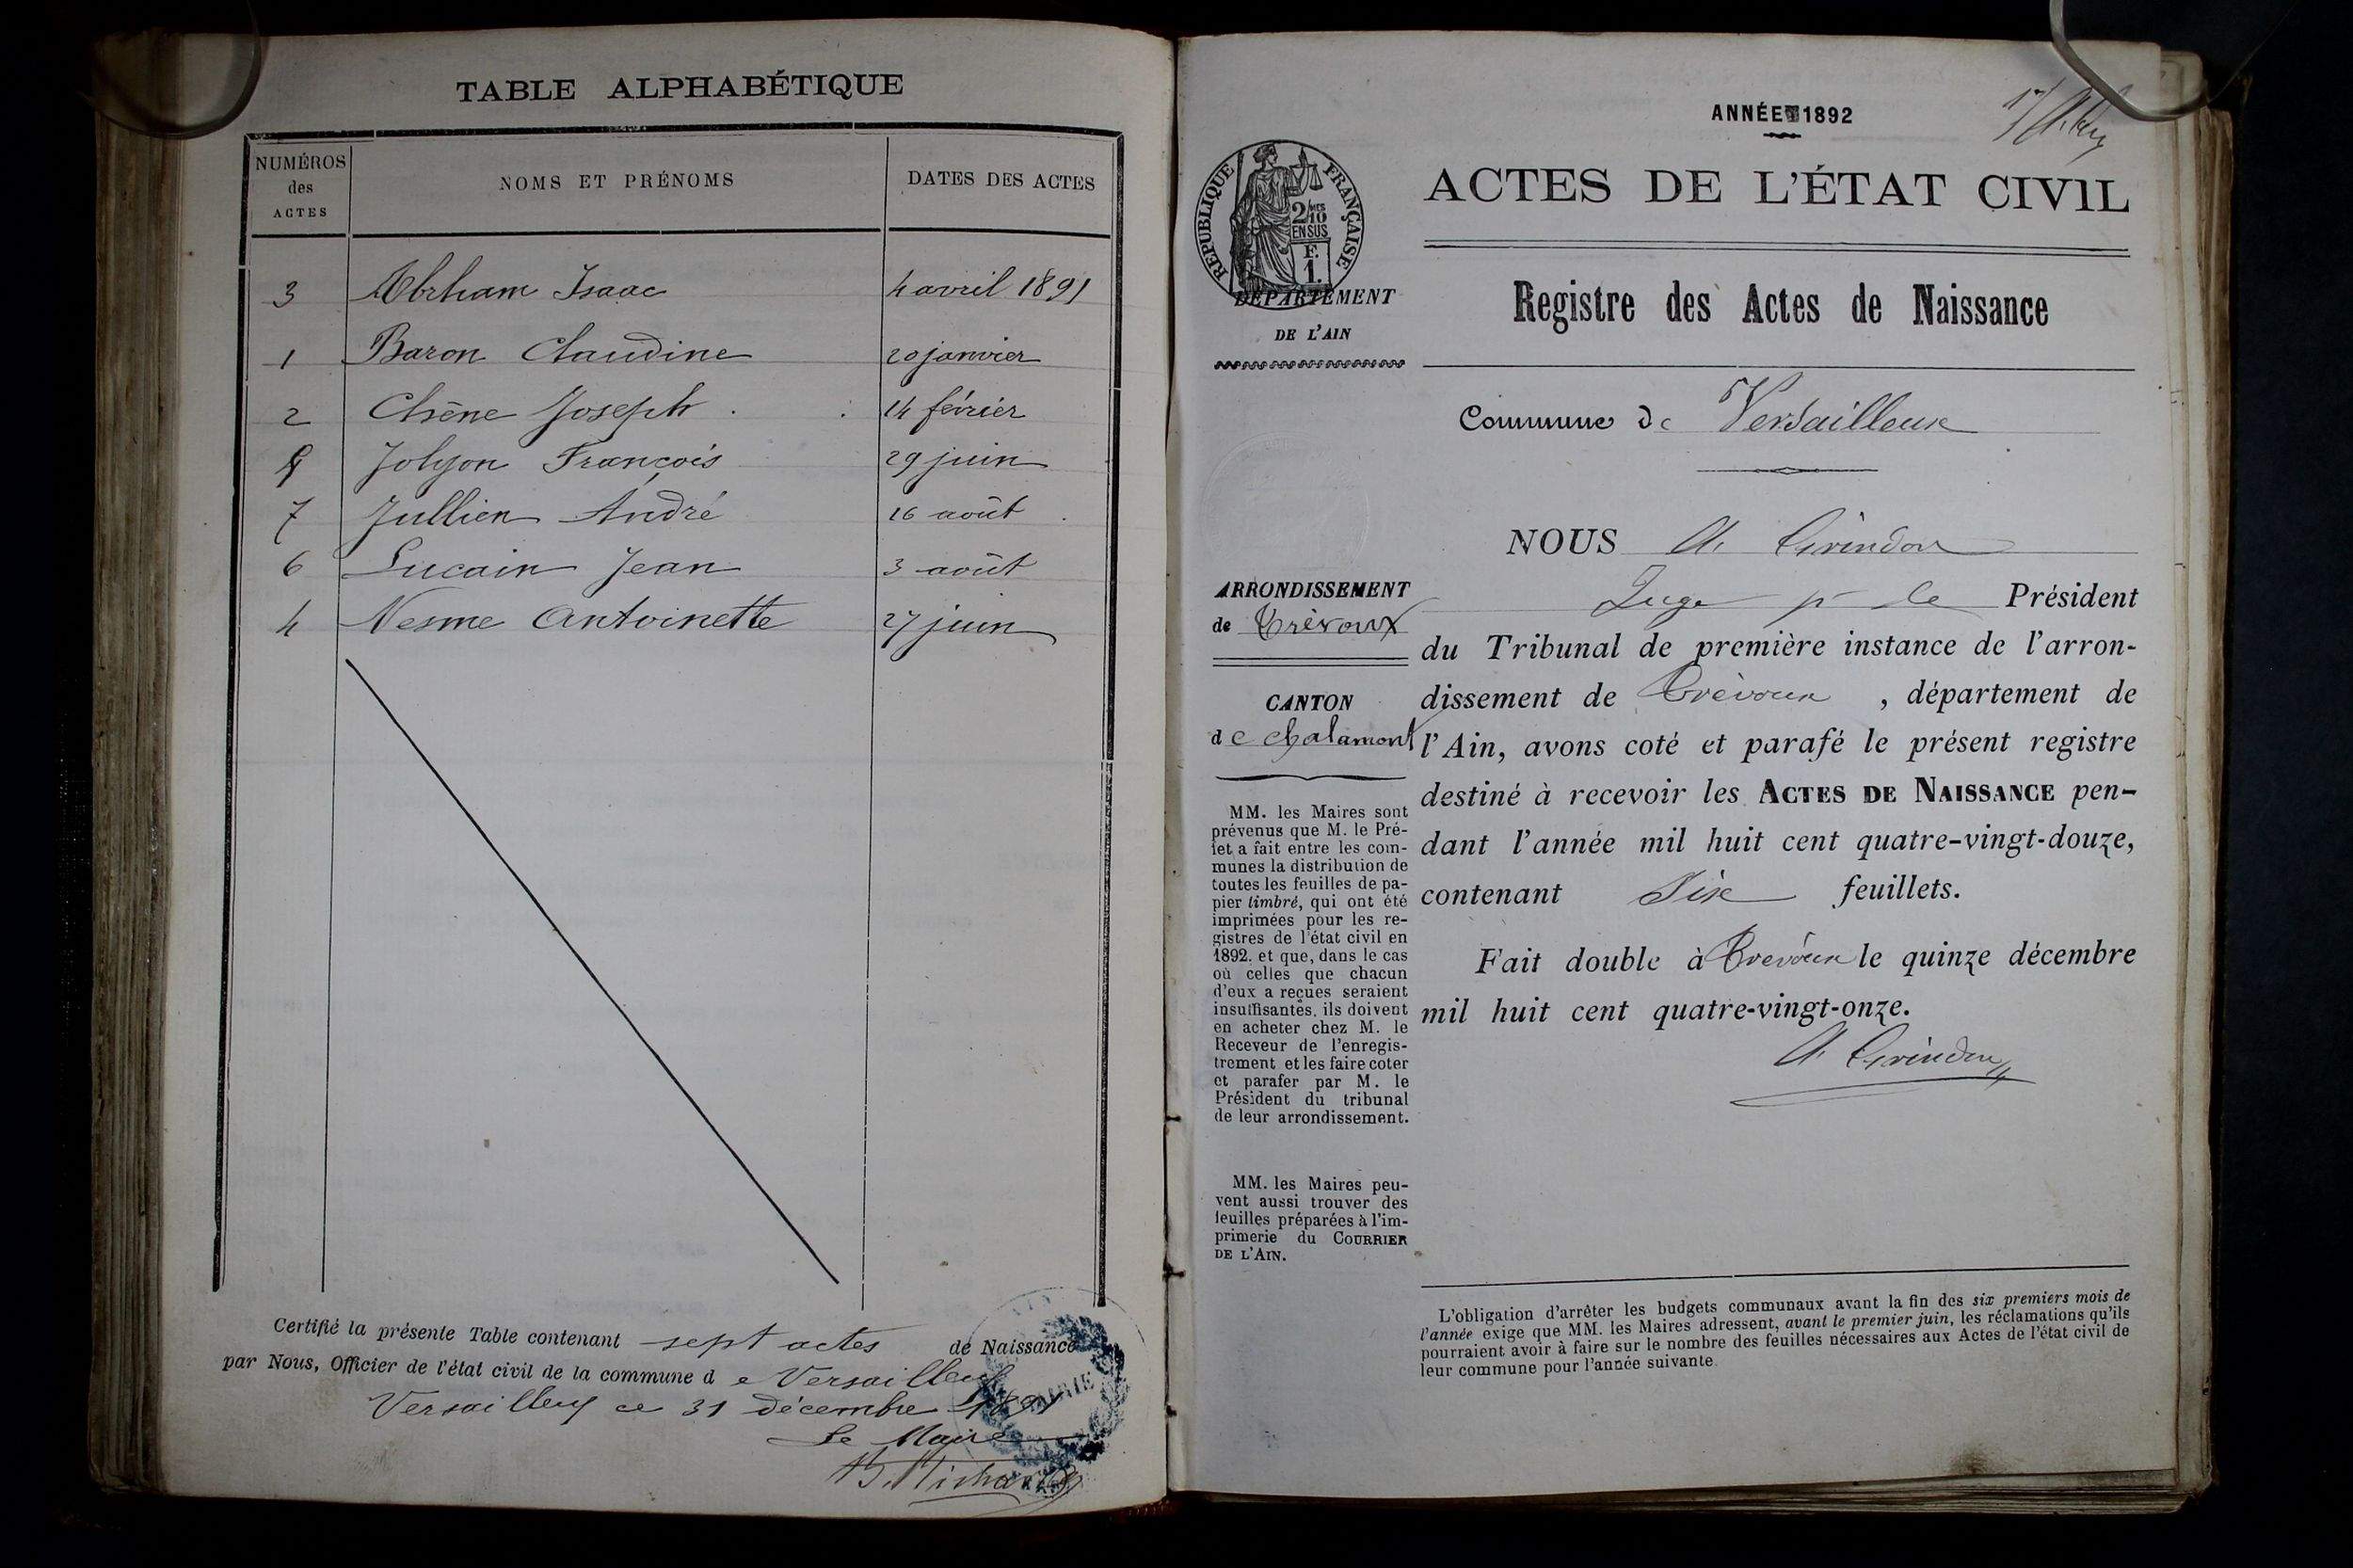 TABLE ALPHABÉTIQUE
NUMÉROS des ACTES
NOMS ET PRÉNOMS
DATES DES ACTES
3 Abrham Isaac 4 avril 1891
1 Baron Claudine 20 janvier
2 Chêne Joseph 14 février
Jolyon François 29 juin
7 Jullien André 16 août
6 Lucain Jean 3 août
4 Nesme Antoinette 27 juin
Certifié la présente Table contenant sept actes de Naissance
par Nous, Officier de l'état civil de la commune d e Versailleux
Versailleux ce 31 décembre 1891
Le Maire
MAIRIE
ANNÉE 1892
RÉPUBLIQUE FRANÇAISE
2/10MES
EN SUS
F.
1.
DÉPARTEMENT
DE L'AIN
ACTES DE L'ÉTAT CIVIL
Registre des Actes de Naissance
Commune de Versailleux
ARRONDISSEMENT
de Trévoux
CANTON
de Chalamont
MM. les Maires sont
prévenus que M. le Pré-
fet a fait entre les com-
munes la distribution de
toutes les feuilles de pa-
pier timbré, qui ont été
imprimées pour les re-
gistres de l'état civil en
1892. et que, dans le cas
où celles que chacun
d'eux a reçues seraient
insuffisantes, ils doivent
en acheter chez M. le
Receveur de l'enregis-
trement et les faire coter
et parafer par M. le
Président du tribunal
de leur arrondissement.
MM. les Maires peu-
vent aussi trouver des
feuilles préparées à l'im-
primerie du COURRIER
DE L'AIN.
NOUS A. Grindon
Juge pr le Président
du Tribunal de première instance de l'arron-
dissement de Trévoux , département de
l'Ain, avons coté et parafé le présent registre
destiné à recevoir les ACTES DE NAISSANCE pen-
dant l'année mil huit cent quatre-vingt-douze,
contenant Six feuillets.
Fait double à Trévoux le quinze décembre
mil huit cent quatre-vingt-onze.
A. Grindon
L'obligation d'arrêter les budgets communaux avant la fin des six premiers mois de
l'année exige que MM. les Maires adressent, avant le premier juin, les réclamations qu'ils
pourraient avoir à faire sur le nombre des feuilles nécessaires aux Actes de l'état civil de
leur commune pour l'année suivante.